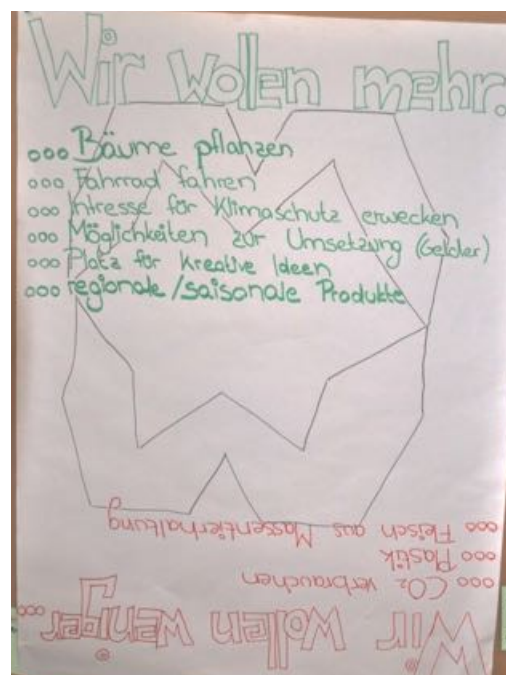 Wir wollen mehr.
ooo Bäume pflanzen
ooo Fahrrad fahren
ooo Intresse für Klimaschutz erwecken
ooo Möglichkeiten zur Umsetzung (Gelder)
ooo Platz für kreative Ideen
ooo regionale/saisonale Produkte
Wir wollen weniger ...
ooo CO₂ verbrauchen
ooo Plastik
ooo Fleisch aus Massentierhaltung